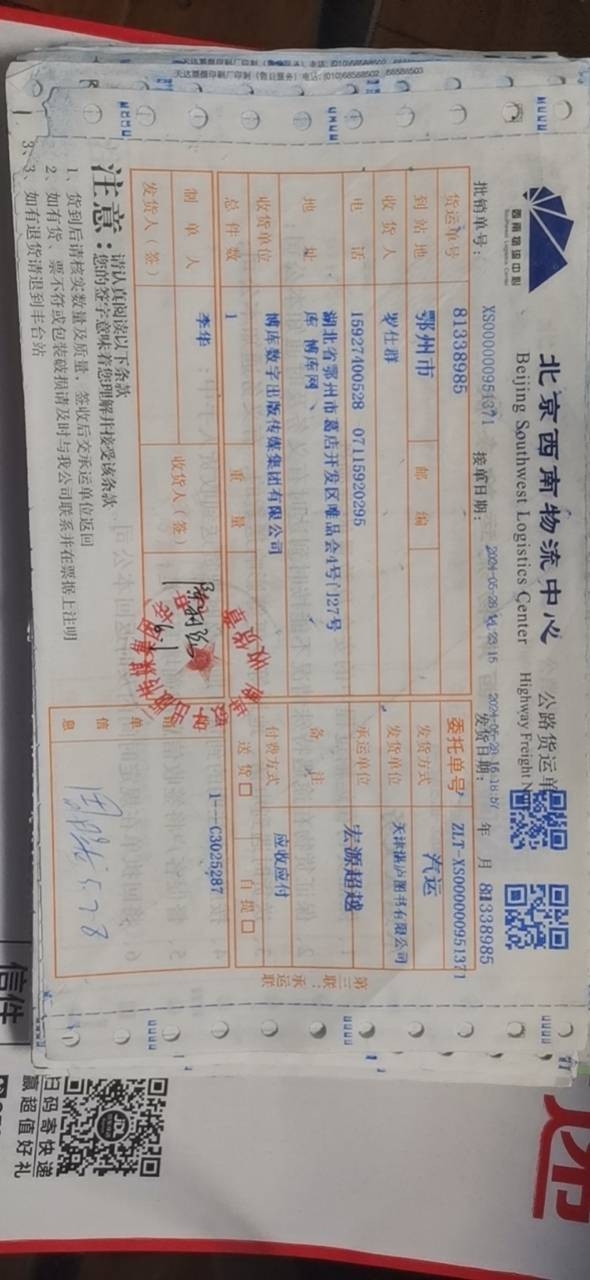 天达票据印刷厂印刷(售后服务)电话:(010)68588502 68588503
西南物流中心
Southwest Logistics Center
北京西南物流中心 公路货运单
Beijing Southwest Logistics Center Highway Freight
批销单号: XS000000951371 接单日期: 2024-05-26 发货日期: 年 月 81338985
货运单号 81338985 委托单号 ZLT-XS000000951371
到站地 鄂州市 邮编 发货方式 汽运
收货人 罗仕群 发货单位 天津湛庐图书有限公司
电话 15927400528 07115920295 承运单位 宏源超越
地址 湖北省鄂州市葛店开发区唯品会4号门27号
库 博库网、 备注
收货单位 博库数字出版传媒集团有限公司 付费方式 应收应付
总件数 1 重量 送货□ 自提□
制单人 李华 1---C3025287
发货人(签) 收货人(签) 单信息
注意:请认真阅读以下条款
您的签字意味着您理解并接受该条款
1、货到后请核实数量及质量,签收后交承运单位返回
2、如有货、票不符或包装破损请及时与我公司联系并在票据上注明
3、如有退货请退到丰台站
第三联:承运联
收货章
5.28
信件
扫码寄快递
赢超值好礼
递